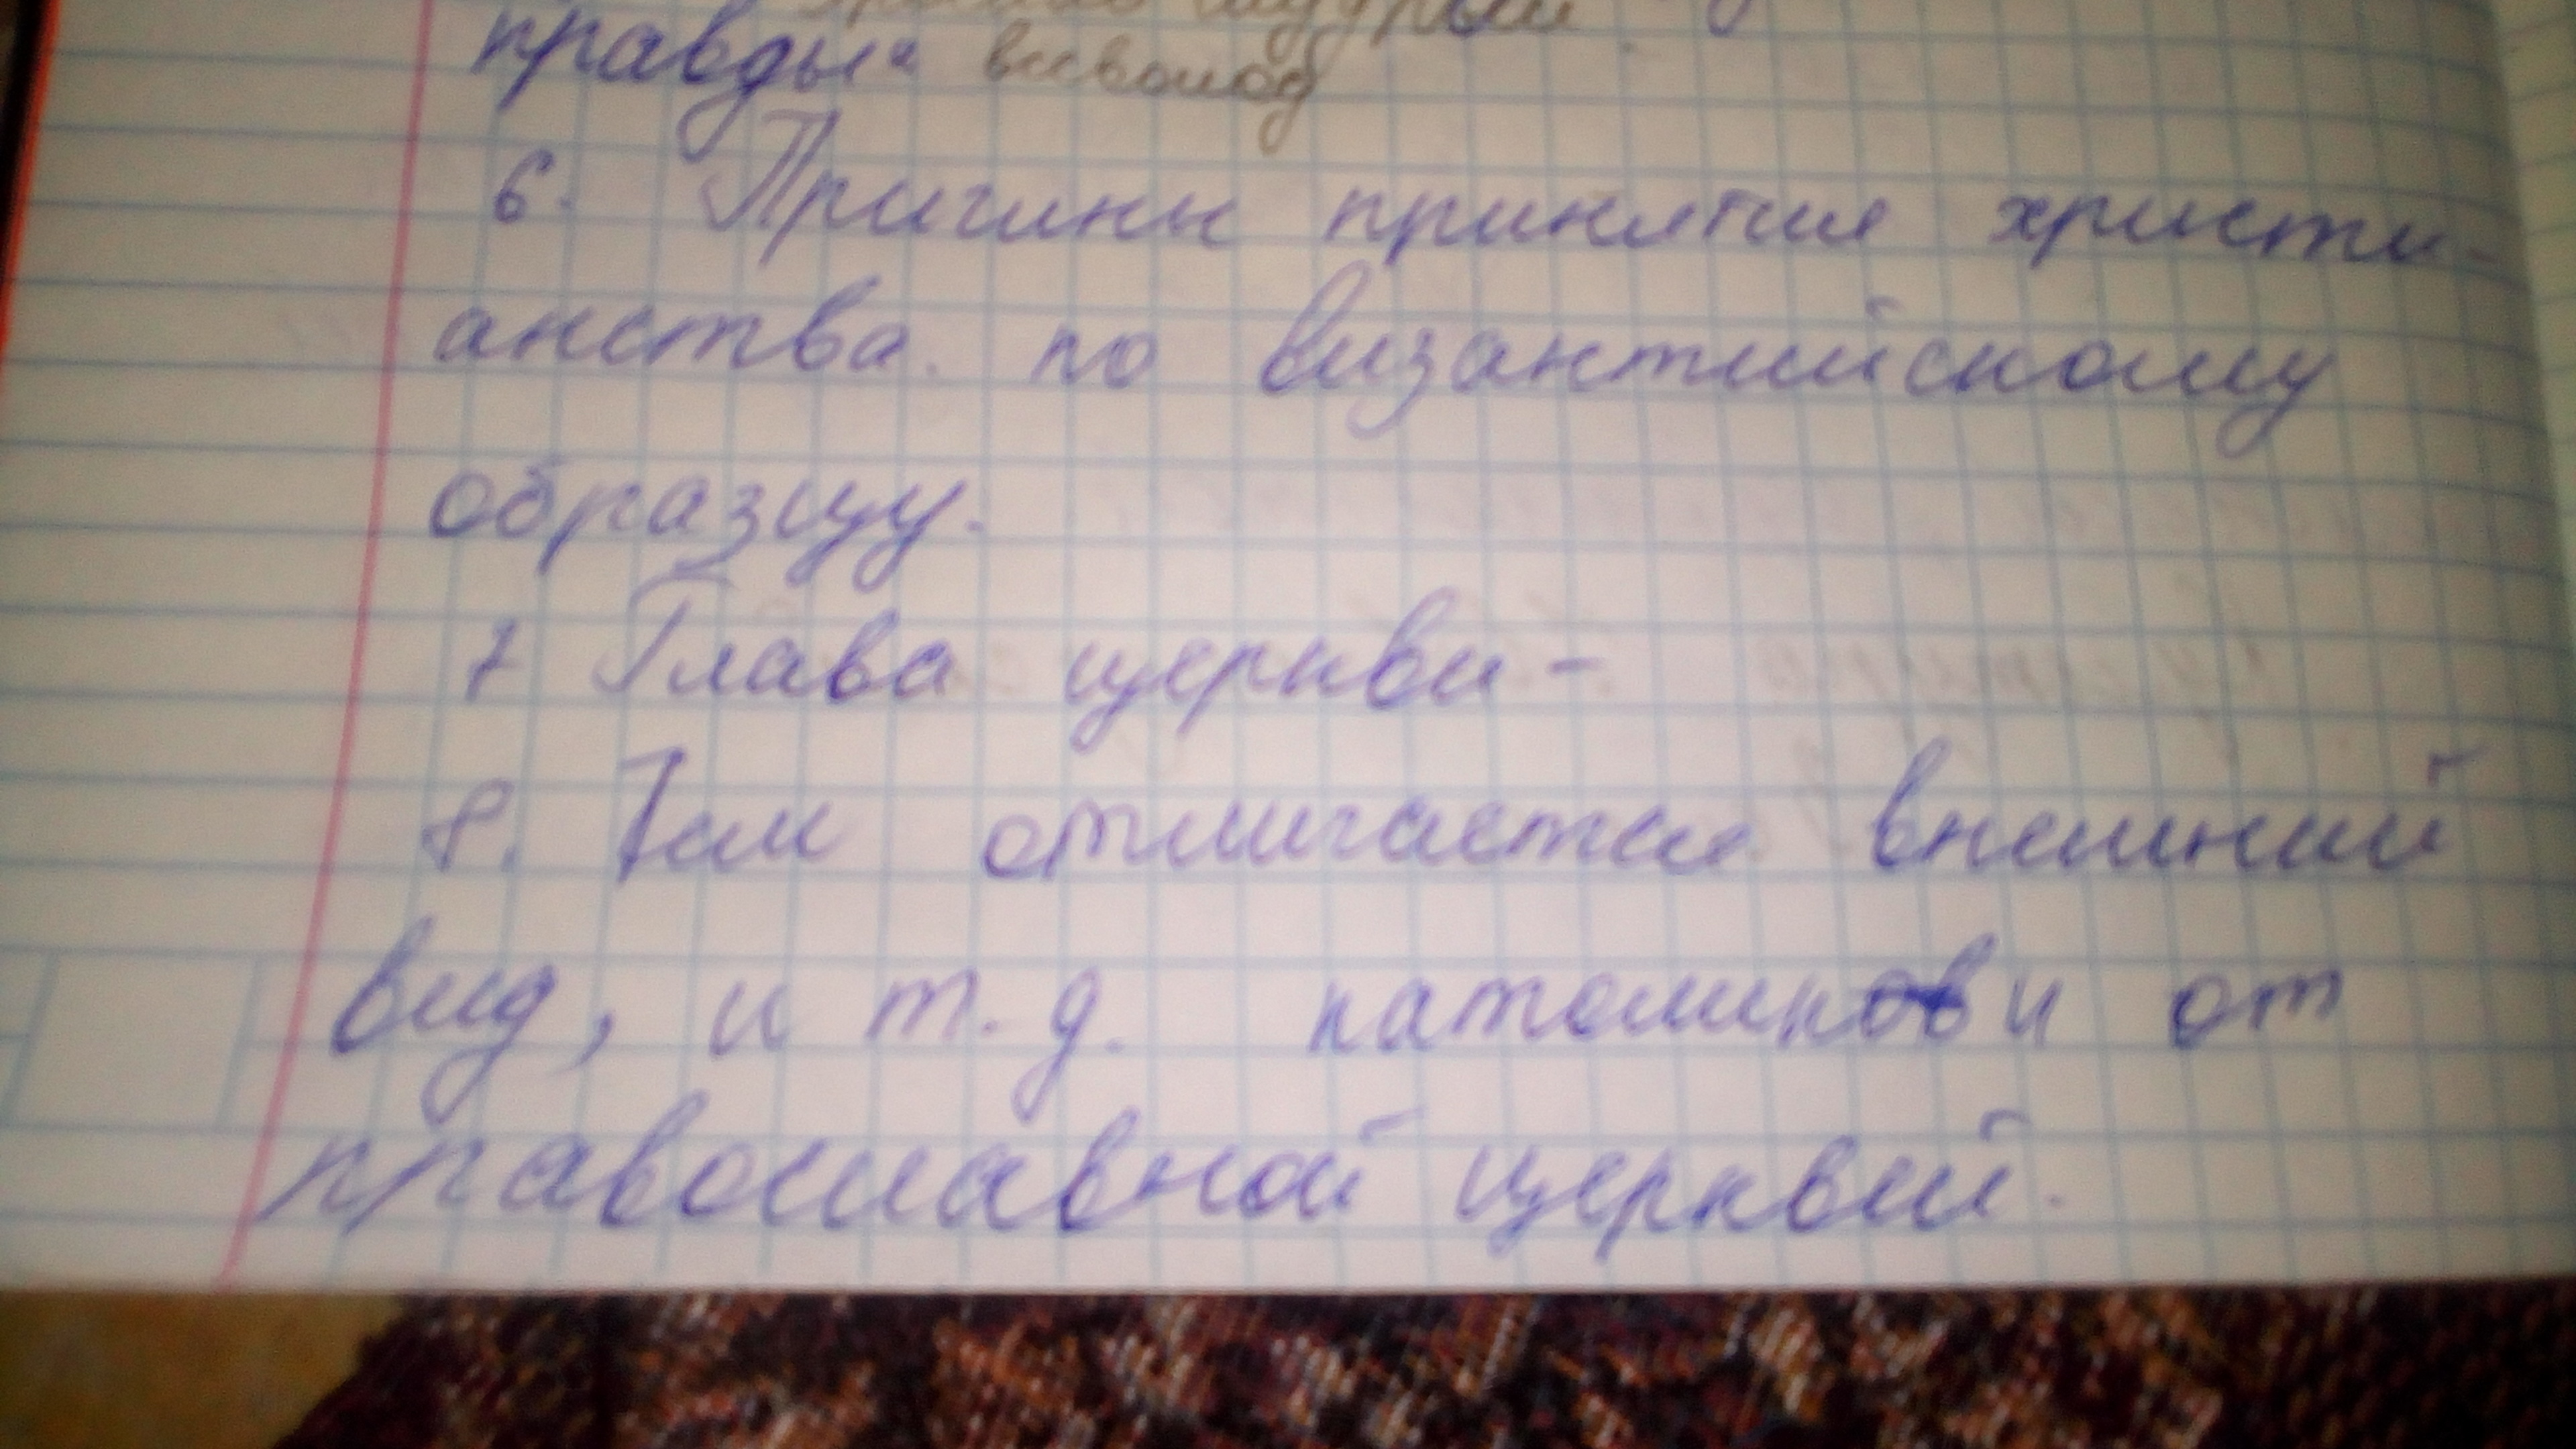 мудрый
правды" всеволод
6. Причины приняτия христи-
анства. по византийскому
образцу.
7 Глава церкви-
8. Тем отличается внешний
вид, и т. д. католиков и от
православной церквей.